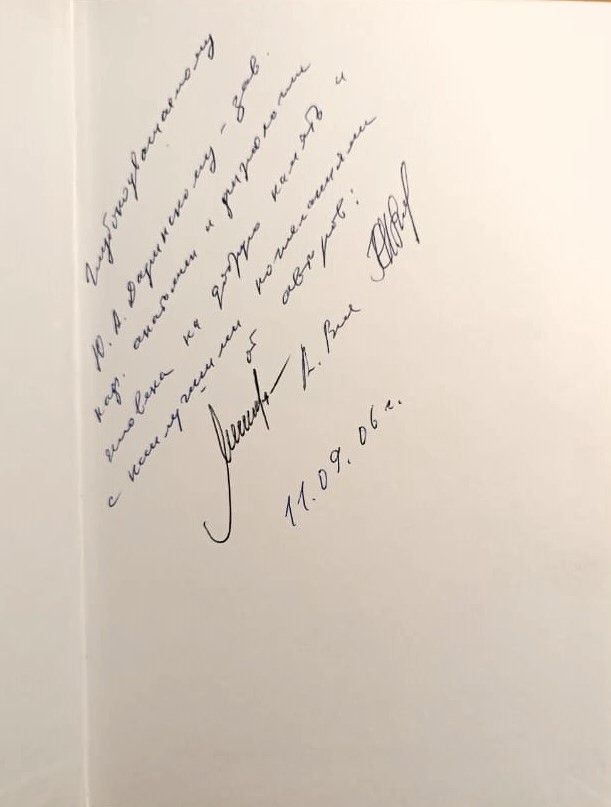 Глубокоуважаемому
Ю. А. Даринскому - зав.
каф. анатомии и физиологии
человека на добрую память и
с наилучшими пожеланиями
от авторов:
11.09.06 г.